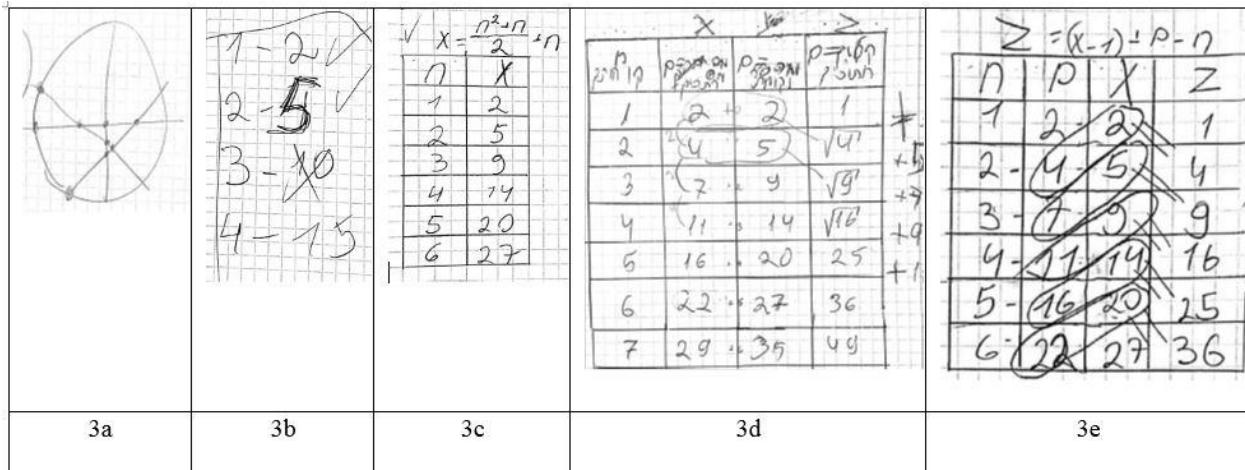 1 - 2 ✓
2 - 5 ✓
3 - 10
4 - 15
√ X = n²+n / 2 + n
n X
1 2
2 5
3 9
4 14
5 20
6 27
X Z
1 2 2 1
2 4 5 √4
3 7 9 √9
4 11 14 √16
5 16 20 25
6 22 27 36
7 29 35 49
+5
+7
+9
Z = (X-1) + P - n
n P X Z
1 2 - 2 1
2 - 4 - 5 4
3 - 7 9 9
4 - 11 14 16
5 - 16 20 25
6 - 22 - 27 36
3a 3b 3c 3d 3e